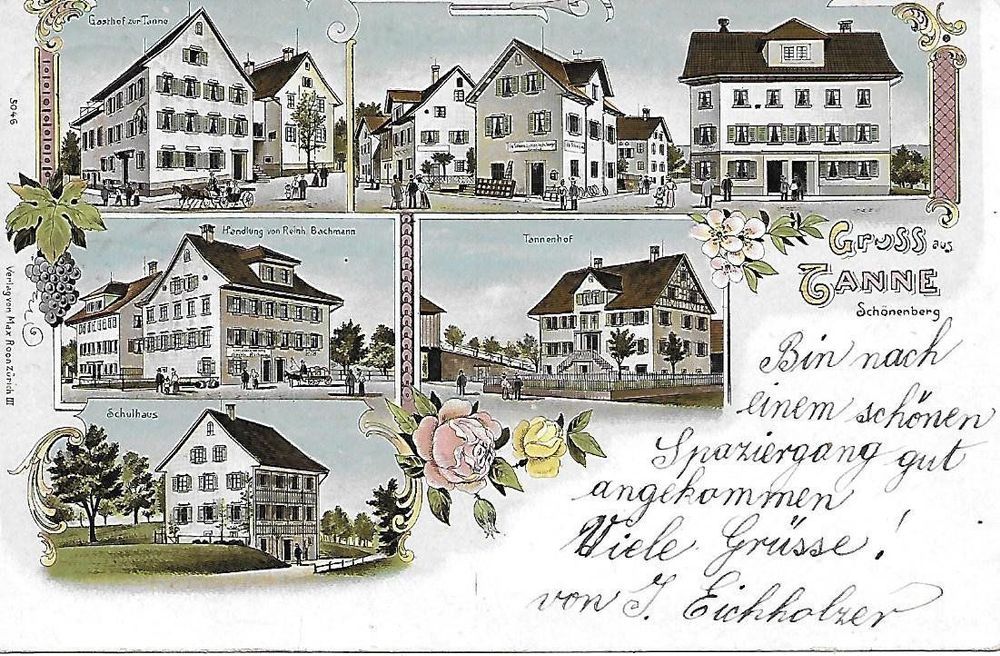 Gasthof zur Tanne
5046
Handlung von Reinh. Bachmann
Tannenhof
Gruss aus
TANNE
Schönenberg
Schulhaus
Verlag von Max Roon Zürich III
Bin nach
einem schönen
Spaziergang gut
angekommen
Viele Grüsse!
von J. Eichholzer